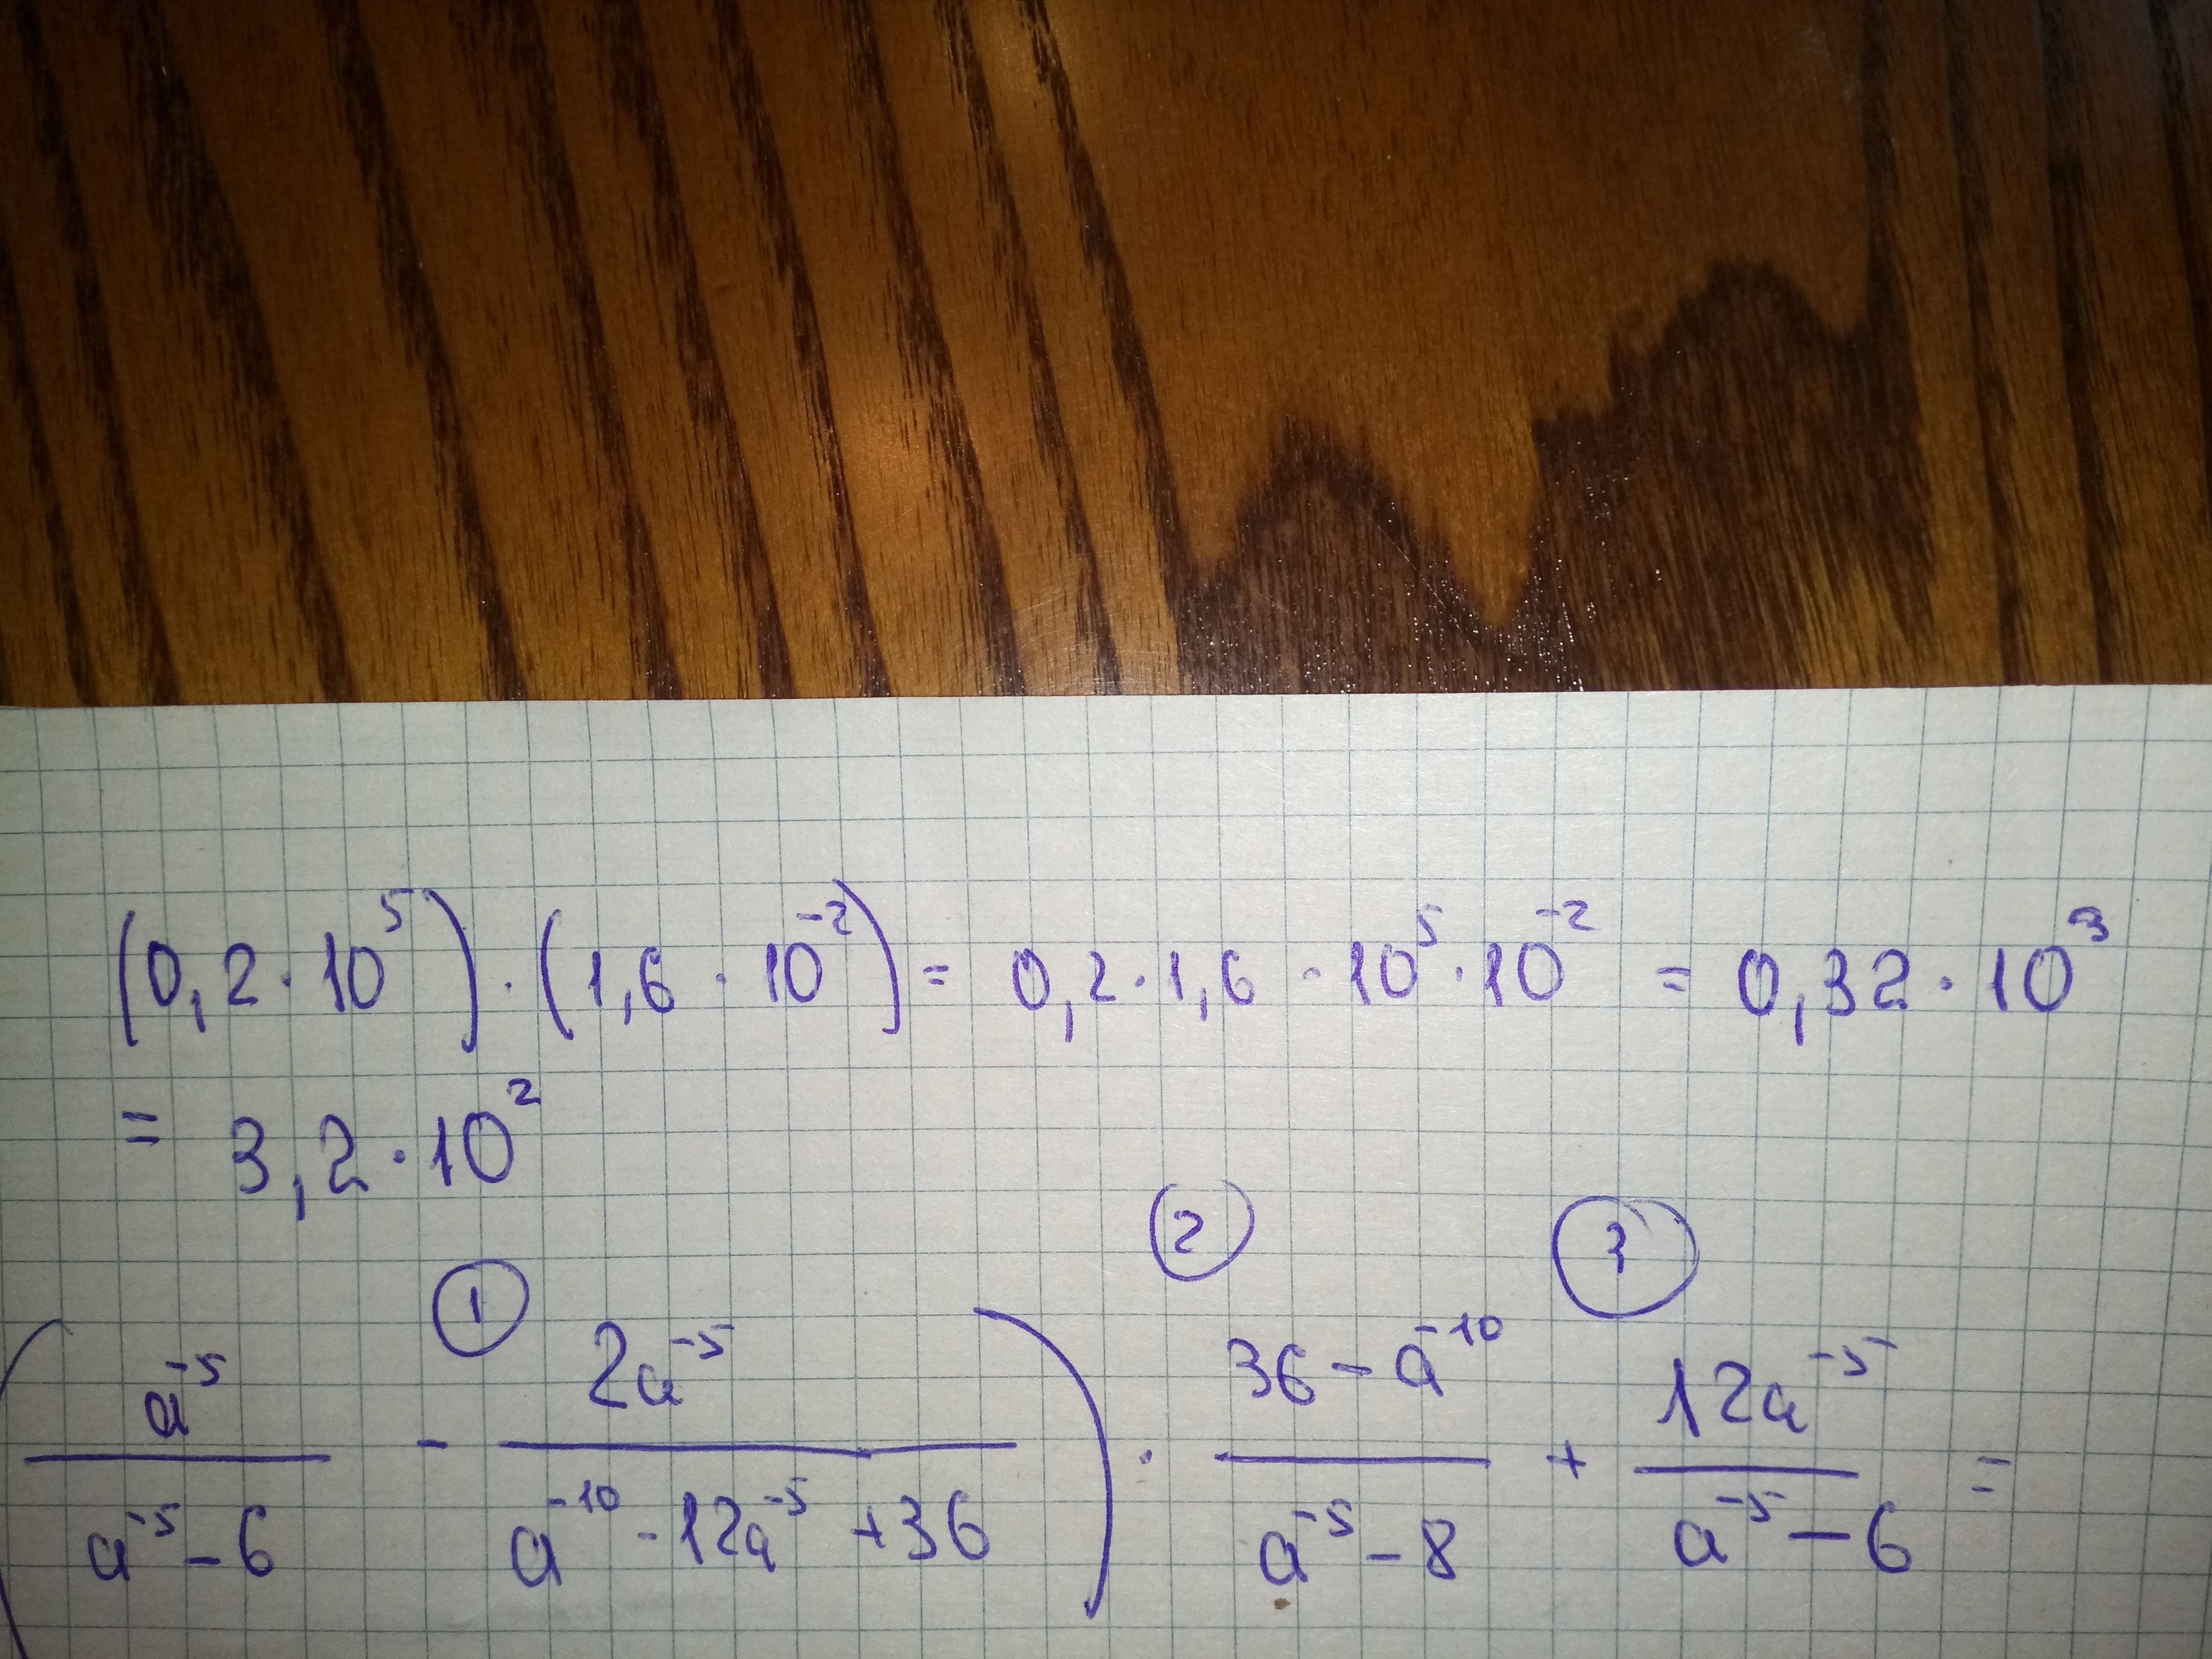 (0,2·10⁵)·(1,6·10⁻²)= 0,2·1,6·10⁵·10⁻² = 0,32·10³
= 3,2·10²
① ② ③
(a⁻⁵/(a⁻⁵-6) - 2a⁻⁵/(a⁻¹⁰-12a⁻⁵+36))·(36-a⁻¹⁰)/(a⁻⁵-8) + 12a⁻⁵/(a⁻⁵-6) =